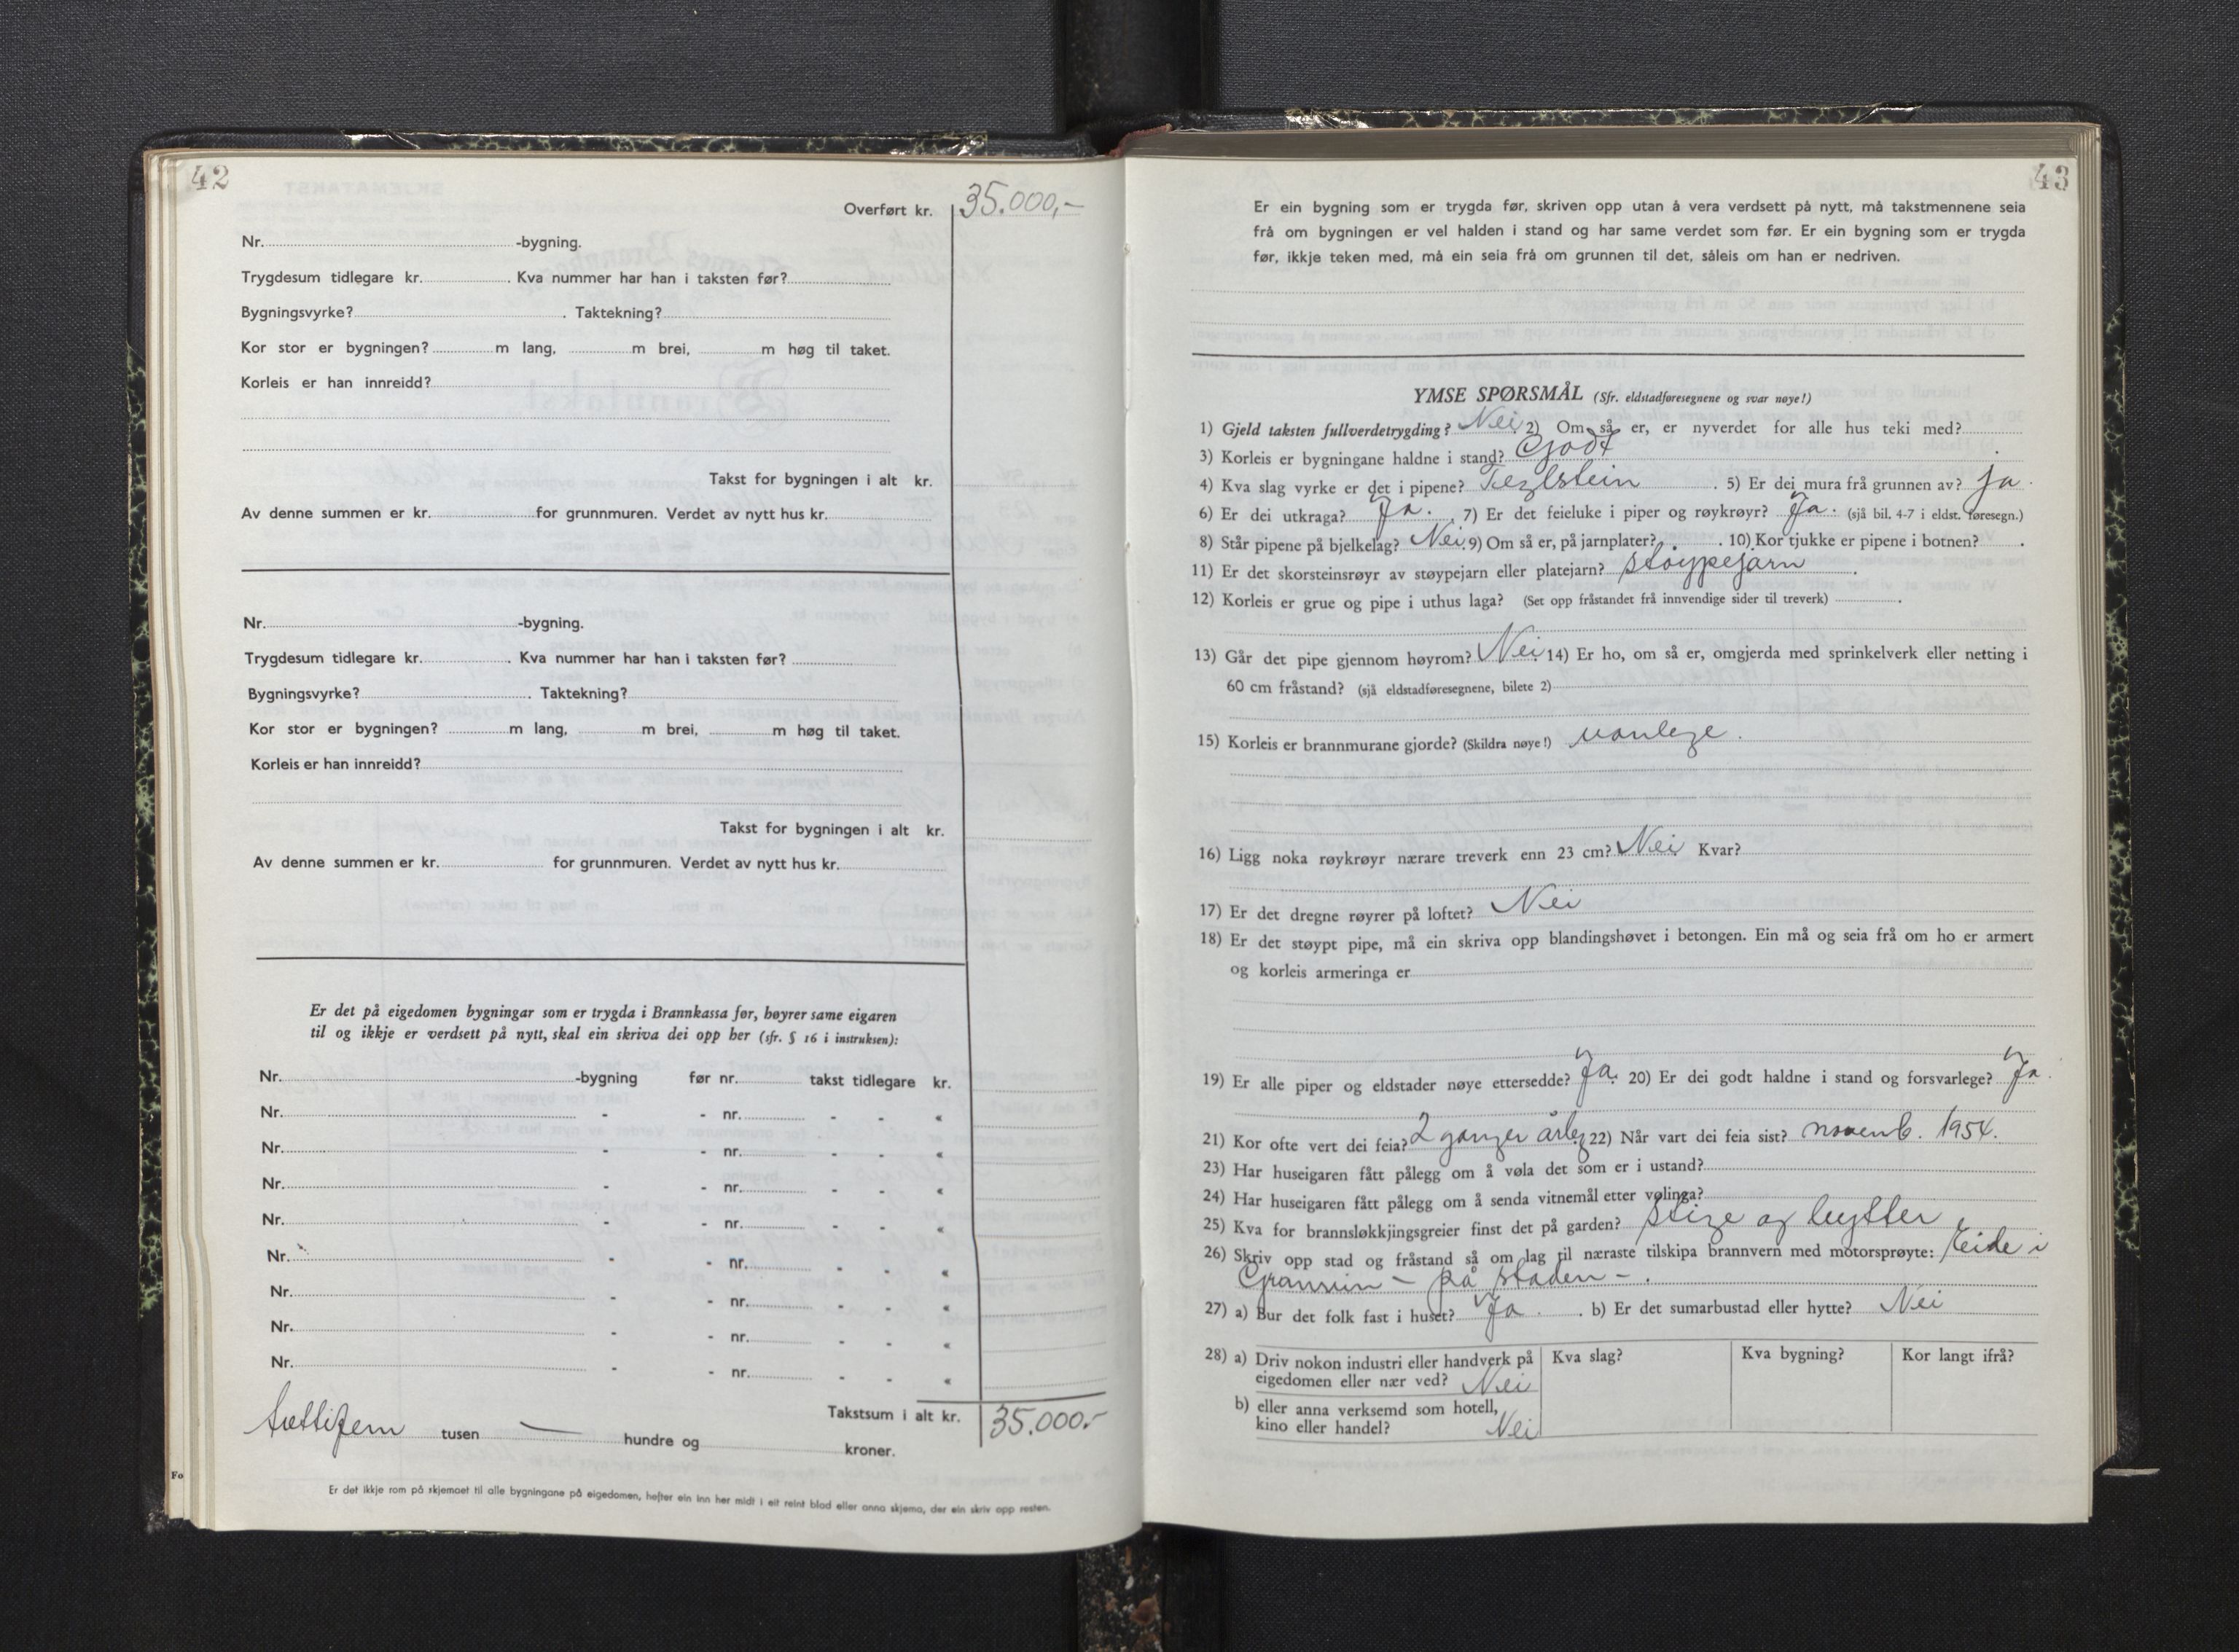 42
Overført kr. 35.000,-
Nr. -bygning.
Trygdesum tidlegare kr. . Kva nummer har han i taksten før?
Bygningsvyrke? . Taktekning?
Kor stor er bygningen? m lang, m brei, m høg til taket.
Korleis er han innreidd?
Takst for bygningen i alt kr.
Av denne summen er kr. for grunnmuren. Verdet av nytt hus kr.
Nr. -bygning.
Trygdesum tidlegare kr. . Kva nummer har han i taksten før?
Bygningsvyrke? . Taktekning?
Kor stor er bygningen? m lang, m brei, m høg til taket.
Korleis er han innreidd?
Takst for bygningen i alt kr.
Av denne summen er kr. for grunnmuren. Verdet av nytt hus kr.
Er det på eigedomen bygningar som er trygda i Brannkassa før, høyrer same eigaren
til og ikkje er verdsett på nytt, skal ein skriva dei opp her (sfr. § 16 i instruksen):
Nr. -bygning før nr. takst tidlegare kr.
Nr. - - nr. - - «
Nr. - - nr. - - «
Nr. - - nr. - - «
Nr. - - nr. - - «
Nr. - - nr. - - «
Nr. - - nr. - - «
Nr. - - nr. - - «
Nr. - - nr. - - «
Takstsum i alt kr. 35.000.-
trettifem tusen — hundre og kroner.
Fo
Er det ikkje rom på skjemaet til alle bygningane på eigedomen, hefter ein inn her midt i eit reint blad eller anna skjema, der ein skriv opp resten.
43
Er ein bygning som er trygda før, skriven opp utan å vera verdsett på nytt, må takstmennene seia
frå om bygningen er vel halden i stand og har same verdet som før. Er ein bygning som er trygda
før, ikkje teken med, må ein seia frå om grunnen til det, såleis om han er nedriven.
YMSE SPØRSMÅL (Sfr. eldstadføresegnene og svar nøye!)
1) Gjeld taksten fullverdetrygding? Nei 2) Om så er, er nyverdet for alle hus teki med?
3) Korleis er bygningane haldne i stand? Godt
4) Kva slag vyrke er det i pipene? Teglstein . 5) Er dei mura frå grunnen av? Ja.
6) Er dei utkraga? Ja. . 7) Er det feieluke i piper og røykrøyr? Ja. (sjå bil. 4-7 i eldst. føresegn.)
8) Står pipene på bjelkelag? Nei. 9) Om så er, på jarnplater? . 10) Kor tjukke er pipene i botnen? .
11) Er det skorsteinsrøyr av støypejarn eller platejarn? støypejarn .
12) Korleis er grue og pipe i uthus laga? (Set opp fråstandet frå innvendige sider til treverk) .
13) Går det pipe gjennom høyrom? Nei 14) Er ho, om så er, omgjerda med sprinkelverk eller netting i
60 cm fråstand? (sjå eldstadføresegnene, bilete 2)
15) Korleis er brannmurane gjorde? (Skildra nøye!) vanlege.
16) Ligg noka røykrøyr nærare treverk enn 23 cm? Nei Kvar?
17) Er det dregne røyrer på loftet? Nei
18) Er det støypt pipe, må ein skriva opp blandingshøvet i betongen. Ein må og seia frå om ho er armert
og korleis armeringa er
19) Er alle piper og eldstader nøye ettersedde? Ja. 20) Er dei godt haldne i stand og forsvarlege? Ja.
21) Kor ofte vert dei feia? 2 ganger årleg 22) Når vart dei feia sist? novemb. 1954.
23) Har huseigaren fått pålegg om å vøla det som er i ustand?
24) Har huseigaren fått pålegg om å senda vitnemål etter vølinga?
25) Kva for brannsløkkjingsgreier finst det på garden? stige og bytter
26) Skriv opp stad og fråstand så om lag til næraste tilskipa brannvern med motorsprøyte: Eide i
Granvin - på staden - .
27) a) Bur det folk fast i huset? Ja . b) Er det sumarbustad eller hytte? Nei
28) a) Driv nokon industri eller handverk på eigedomen eller nær ved? Nei Kva slag? Kva bygning? Kor langt ifrå?
b) eller anna verksemd som hotell,
kino eller handel? Nei